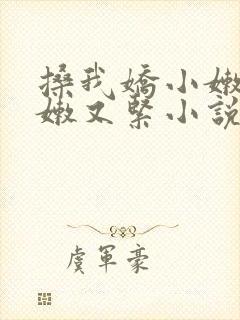 搡我嬌小嫩
嫩又緊小說
虞軍豪